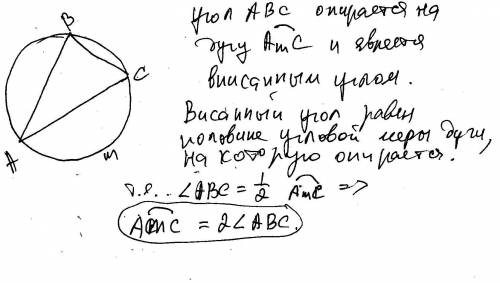 B
C
A
m
угол ABC опирается на
дугу AmC и является
вписанным углом.
Вписанный угол равен
половине угловой меры дуги,
на которую опирается.
т.е. ∠ABC = 1/2 AmC =>
AmC = 2∠ABC.